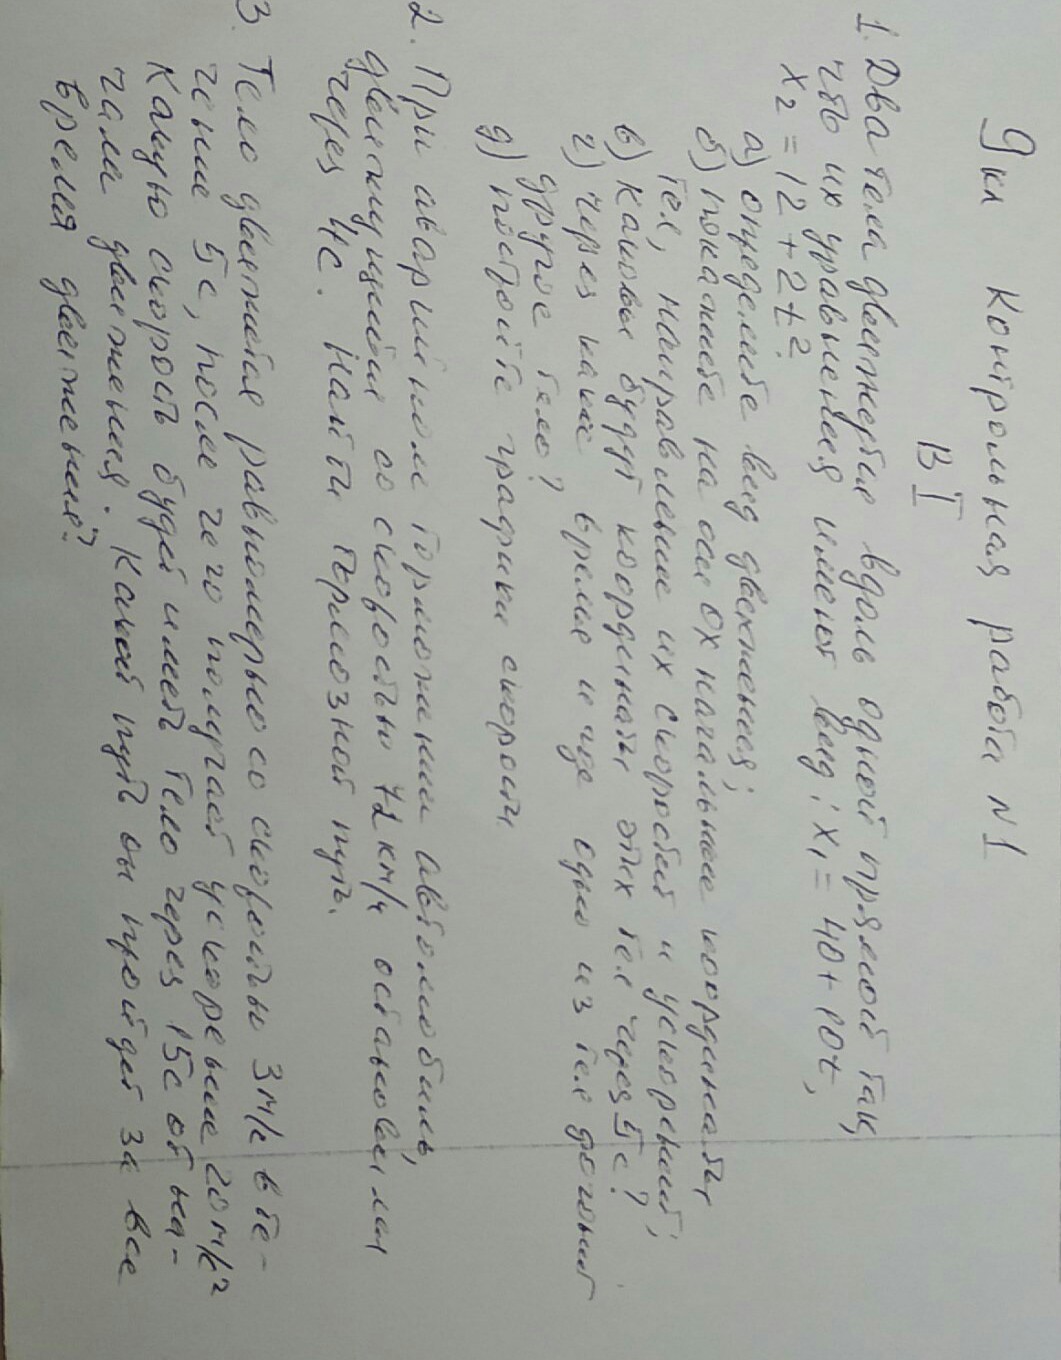 9 кл Контрольная работа N 1
В I
1. Два тела движутся вдоль одной прямой так,
что их уравнения имеют вид: x₁ = 40 + 10t,
x₂ = 12 + 2t².
а) определите вид движения;
б) покажите на оси ОХ начальные координаты
тел, направление их скоростей и ускорений;
в) каковы будут кординаты этих тел через 5с?
г) через какое время и где одно из тел догонит
другое тело?
д) постройте графики скорости.
2. При аварийном торможении автомобиль,
движущийся со скоростью 72 км/ч остановился
через 4с. Найти тормозной путь.
3. Тело движется равномерно со скоростью 3м/с в те-
чение 5с, после чего получает ускорение 20м/с²
Какую скорость будет иметь тело через 15с от на-
чала движения. Какой путь он пройдет за все
время движения?